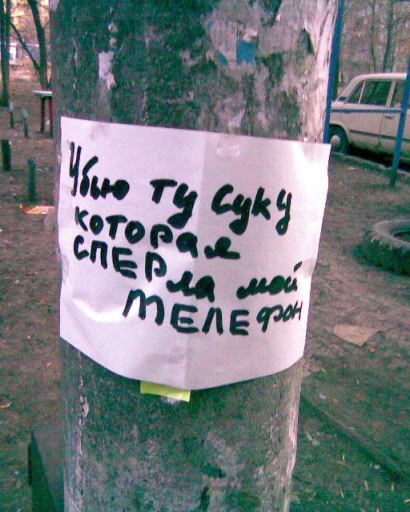 Убью ту суку
которая
сперла мой
телефон